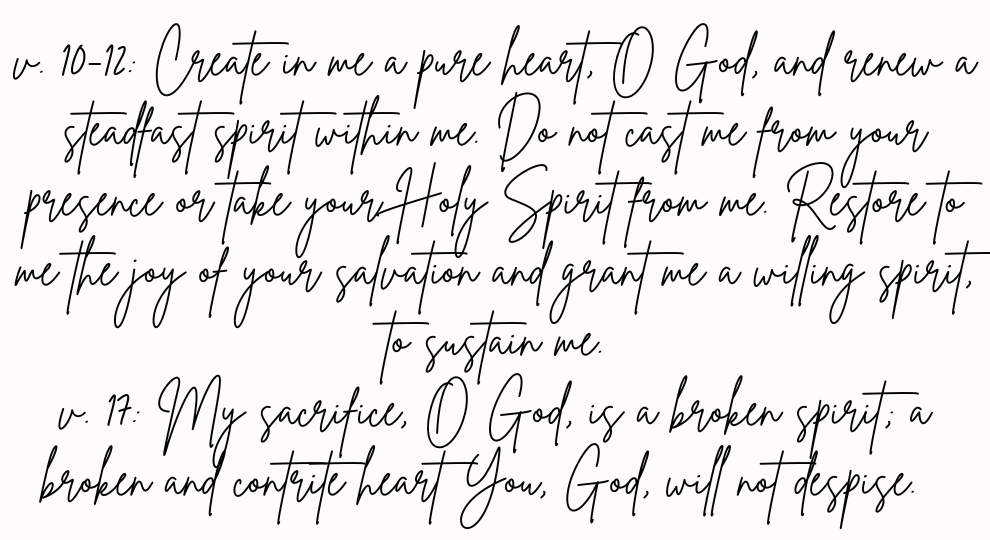 v. 10-12: Create in me a pure heart, O God, and renew a
steadfast spirit within me. Do not cast me from your
presence or take your Holy Spirit from me. Restore to
me the joy of your salvation and grant me a willing spirit,
to sustain me.
v. 17: My sacrifice, O God, is a broken spirit; a
broken and contrite heart You, God, will not despise.